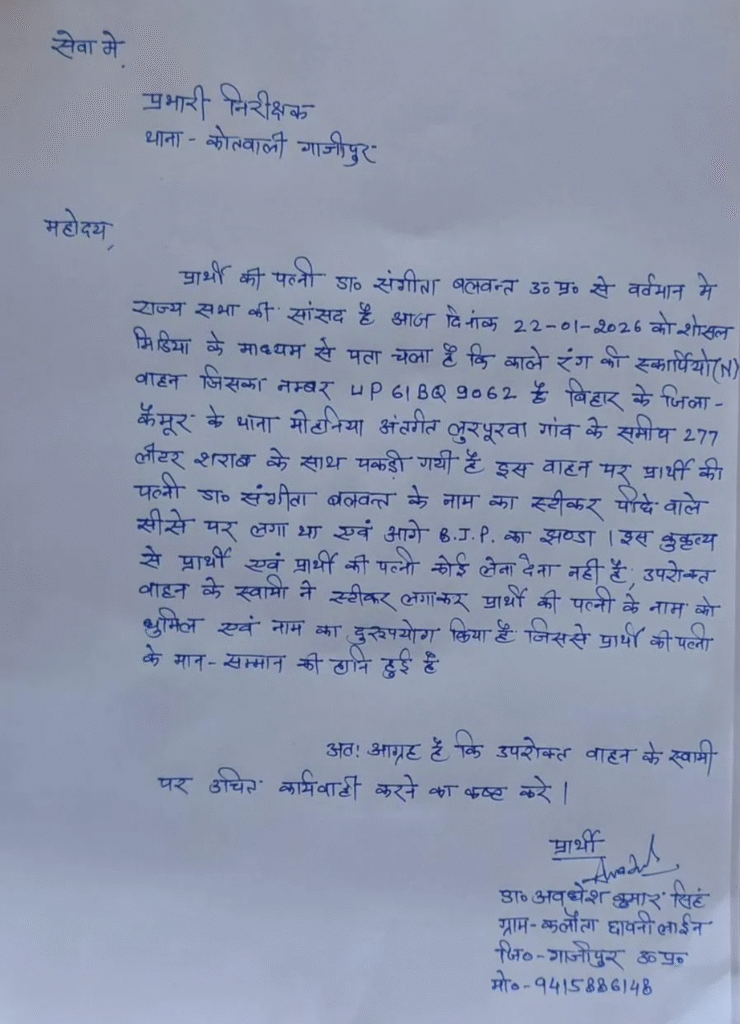 सेवा मे,
प्रभारी निरीक्षक
थाना - कोतवाली गाजीपुर
महोदय,
प्रार्थी की पत्नी डा० संगीता बलवन्त उ०प्र० से वर्तमान मे
राज्य सभा की सांसद है आज दिनांक 22-01-2026 को शोसल
मिडिया के माध्यम से पता चला है कि काले रंग की स्कार्पियो(N)
वाहन जिसका नम्बर UP61BQ9062 है बिहार के जिला-
कैमूर के थाना मोहनिया अंतर्गत लुरपूरवा गांव के समीप 277
लीटर शराब के साथ पकड़ी गयी है इस वाहन पर प्रार्थी की
पत्नी डा० संगीता बलवन्त के नाम का स्टीकर पीछे वाले
सीसे पर लगा था एवं आगे B.J.P. का झण्डा । इस कुकृत्य
से प्रार्थी एवं प्रार्थी की पत्नी कोई लेना देना नहीं है, उपरोक्त
वाहन के स्वामी ने स्टीकर लगाकर प्रार्थी की पत्नी के नाम को
धुमिल एवं नाम का दुरुपयोग किया है जिससे प्रार्थी की पत्नी
के मान - सम्मान की हानि हुई है
अत: आग्रह है कि उपरोक्त वाहन के स्वामी
पर उचित कार्यवाही करने का कष्ट करे ।
प्रार्थी
डा० अवधेश कुमार सिंह
ग्राम - छावनी लाईन
जि० - गाजीपुर उ०प्र०
मो० - 9415886148